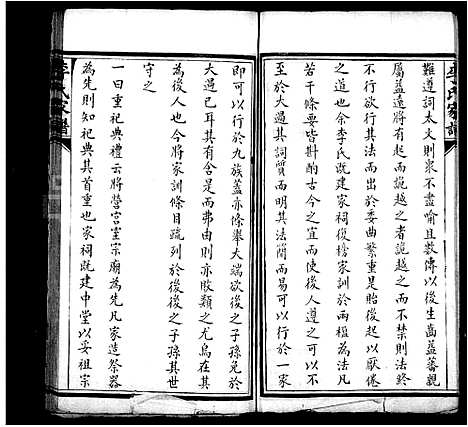 李氏家譜
難導詞太文則衆不盡喻且数傳以後生齒益蕃親
屬益遠將有起而詭越之者詭越之而不禁則法終
不行欲行其法而出於委曲繁重是貽後起以厭倦
之道也余李氏既建家祠後榜家訓於兩楹為法凡
若干條要皆斟酌古今之宜而使後人遵之可以不
至於大過其詞質而明其法簡而易可以行於一家
即可以行於九族蓋亦條舉大端欲後之子孫無於
大過已耳其有合是而弗由則亦敗類之尤烏在其
為後人也今將家訓條目疏列於後後之子孫其世
守之
一曰重祀典禮云將營宫室宗廟為先凡家造祭器
為先則知祀典其首重也家祠既建中堂以妥祖宗
李氏家譜